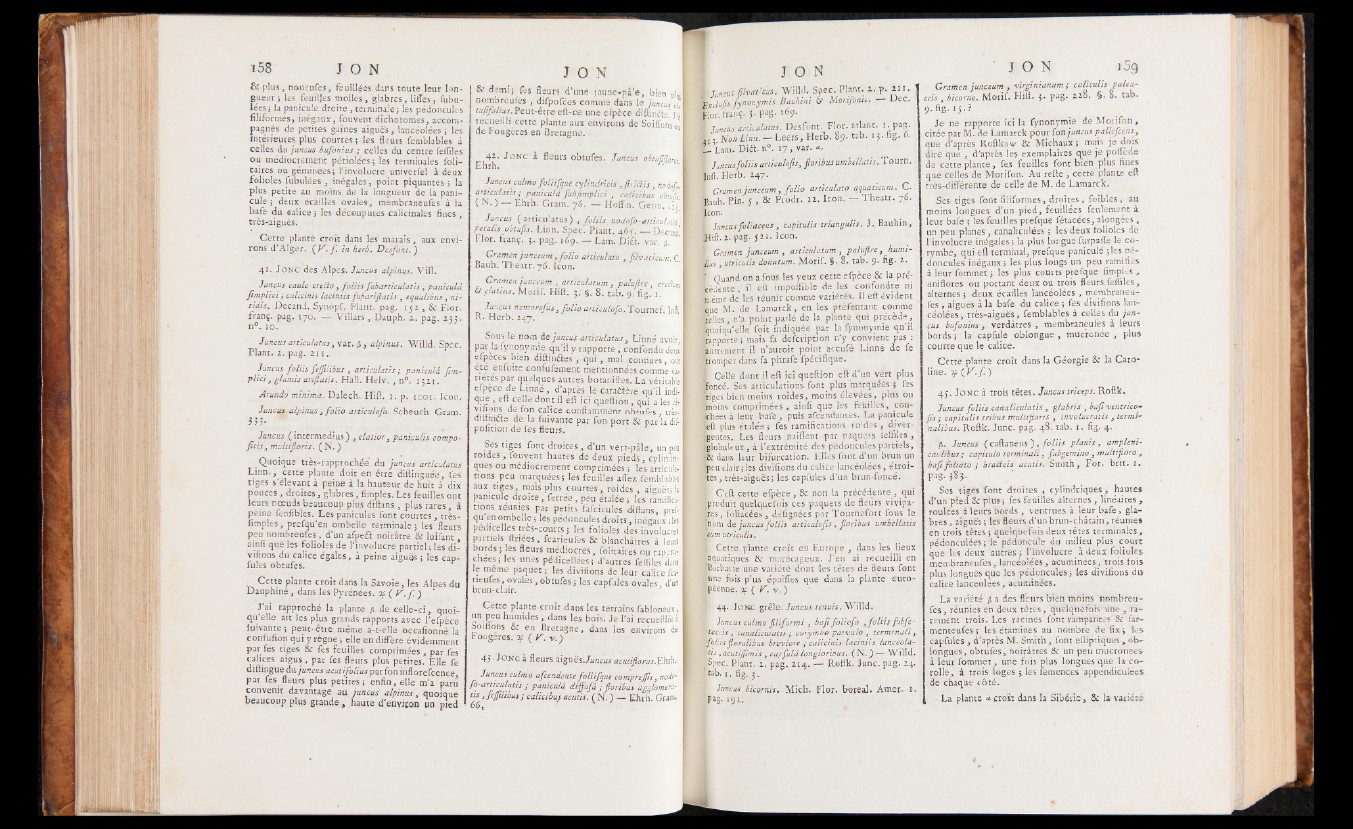 158 JON
& plus, noueuses, feuillées dans toute leur lon-
gueur; les feuilles molles, glabres, lisses, subu-
lées; la panicule droite, terminale; les pédoncules
filiformes, inégaux, souvent dichotomes, accom-
pagnés de petites gaînes aiguës, lancéolées; les
intérieures plus courtes; les fleurs semblables à
celles du juncus bufonius; celles du centre sessiles
ou médiocrement pétiolées; les terminales soli-
taires ou géminées; l'involucre universel à deux
folioles subulées, inégales, point piquantes; la
plus petite au moins de la longueur de la pani-
cule; deux écailles ovales, membraneuses à la
base du calice; les découpures calicinales fines,
très-aiguës.
Cette plante croît dans les marais, aux envi-
rons d'Alger. (V. f. in herb. Desfont.)
41. JONC des Alpes. Juncus alpinus. Vill.
Juncus caule erecto, foliis subarticulatis, paniculâ
simplici; calicinis laciniis subaristatis, aqualibus, ni-
gridis. Decand. Synopf. Plant. pag. 152, & Flor.
franç. pag. 170. — Villars, Dauph. 2. pag. 233.
n°. 10.
Juncus articulatus, var. β, alpinus. Willd. Spec.
Plant. 2. pag. 211.
Juncus foliis sessilibus, articulatis; paniculâ sim-
plici, glumis aristatis. Hall. Helv., n°. 1321.
Arundo minima. Dalech. Hist. 1. p. 1001. Icon.
Juncus alpinus, folio articuloso. Scheuch. Gram.
333.
Juncus (intermedius), elatior, paniculis compo-
sitis, multifloris. (N.)
Quoique très-rapprochée du juncus articulatus
Linn., cette plante doit en être distinguée, ses
tiges s'élevant à peine à la hauteur de huit à dix
pouces, droites, glabres, simples. Les feuilles ont
leurs nœuds beaucoup plus distans, plus rares, à
peine sensibles. Les panicules sont courtes, très-
simples, presqu'en ombelle terminale; les fleurs
peu nombreuses, d'un aspect noirâtre & luisant,
ainsi que les folioles de l'involucre partiel; les di-
visions du calice égales, à peine aiguës; les cap-
sules obtuses.
Cette plante croît dans la Savoie, les Alpes du
Dauphiné, dans les Pyrénées. ♃ (V. f.)
J'ai rapproché la plante β de celle-ci, quoi-
qu'elle ait les plus grands rapports avec l'espèce
suivante; peut-être même a-t-elle occasionné la
confusion qui y règne; elle en diffère évidemment
par ses tiges & ses feuilles comprimées, par ses
calices aigus, par ses fleurs plus petites. Elle se
distingue du juncus acutiflorus par son inflorescence,
par ses fleurs plus petites; enfin, elle m'a paru
convenir davantage au juncus alpinus, quoique
beaucoup plus grande, haute d'environ un pied
JON
& demi; ses fleurs d'une jaune-pâle, bien plus
nombreuses, disposées comme dans le juncus
Peut-être est-ce une espèce distincte. J'ai
recueilli cette plante aux environs de Soissons ou
de Fougères en Bretagne.
42. JONC à fleurs obtuses. Juncus obtusiflorus.
Ehrh.
Juncus culmo foliisque cylindricis, nodoso-
articulatis; paniculâ subsimplici, calicibus obtusis.
(N.) — Ehrh. Gram. 76. — Hoffm. Germ. 125.
Juncus (articulatus), foliis nodoso-articulatis,
petalis obtusis. Linn. Spec. Plant. 465. — Decand.
Flor. franç. 3. pag. 169. — Lam. Dict. var. β.
Gramen junceum, folio articulato, silvaticum. C.
Bauh. Theatr. 76. Icon.
Gramen junceum, articulatum, palustre, erectius
& elatius. Moris. Hist. 3. §. 8. tab. 9. fig. 1.
Juncus nemorosus, folio articuloso. Tournef. Inst.
R. Herb. 247.
Sous le nom de juncus articulatus, Linné avoit,
par la synonymie qu'il y rapporte, confondu deux
espèces bien distinctes, qui, mal connues, ont
été ensuite confusément mentionnées comme va-
riétés par quelques autres botanistes. La véritable
espèce de Linné, d'après le caractère qu'il indi-
que, est celle dont il est ici question, qui a les di-
visions de son calice constamment obtuses, très-
distincte de la suivante par son port & par la dis-
position de ses fleurs.
Ses tiges sont droites, d'un vert-pâle, un peu
roides, souvent hautes de deux pieds, cylindri-
ques ou médiocrement comprimées; les articula-
tions peu marquées; les feuilles assez semblables
aux tiges, mais plus courtes, roides, aiguës; la
panicule droite, serrée, peu étalée; les ramifica-
tions réunies par petits faisceaux distans, pres-
qu'en ombelle; les pédoncules droits, inégaux; les
pédicelles très-courts; les folioles des involucres
partiels striées, scarieuses & blanchâtres à leurs
bords; les fleurs médiocres, solitaires ou rappro-
chées; les unes pédicellées; d'autres sessiles dans
le même paquet; les divisions de leur calice sca-
rieuses, ovales, obtuses; les capsules ovales, d'un
brun-clair.
Cette plante croît dans les terrains sabloneux,
un peu humides, dans les bois. Je l'ai recueillie à
Soissons & en Bretagne, dans les environs de
Fougères. ♃ (V. v.)
43. JONC à fleurs aiguës. Juncus acutiflorus. Ehrh.
Juncus culmo ascendente foliisque compressis, nodo-
so-articulatis; paniculâ diffusâ; floribus agglomera-
tis, sessilibus; calicibus acutis. (N.) — Ehrh. Gram.
66.
JON
Juncus silvaticus. Willd. Spec. Plant. 2. p. 211.
Exclusis synonymis Bauhini & Morisonis. — Dec.
Flor. franç. 3. pag. 169.
Juncus articulatus. Desfont. Flor. atlant. 1. pag.
313. Non Linn. — Leers, Herb. 89. tab. 13. fig. 6.
— Lam. Dict. n°. 17, var. α.
Juncus foliis articulosis, floribus umbellatis. Tourn.
Inst. Herb. 247.
Gramen junceum, folio articulato aquaticum. C.
Bauh. Pin. 5, & Prodr. 12. Icon. — Theatr. 76.
Icon.
Juncus foliaceus, capitulis triangulis. J. Bauhin,
Hist. 2. pag. 521. Icon.
Gramen junceum, articulatum, palustre, humi-
lius, utriculis donatum. Moris. §. 8. tab. 9. fig. 2.
Quand on a sous les yeux cette espèce & la pré-
cédente, il est impossible de les confondre ni
même de les réunir comme variétés. Il est évident
que M. de Lamarck, en les présentant comme
telles, n'a point parlé de la plante qui précède,
quoiqu'elle soit indiquée par la synonymie qu'il
rapporte; mais sa description n'y convient pas:
autrement il n'auroit point accusé Linné de se
tromper dans sa phrase spécifique.
Celle dont il est ici question est d'un vert plus
foncé. Ses articulations sont plus marquées; ses
tiges bien moins roides, moins élevées, plus ou
moins comprimées, ainsi que les feuilles, cou-
chées à leur base, puis ascendantes. La panicule
est plus étalée; ses ramifications roides, diver-
gentes. Les fleurs naissent par paquets sessiles,
globuleux, à l'extrémité des pédoncules partiels,
& dans leur bifurcation. Elles sont d'un brun un
peu clair; les divisions du calice lancéolées, étroi-
tes, très-aiguës; les capsules d'un brun-foncé.
C'est cette espèce, & non la précédente, qui
produit quelquefois ces paquets de fleurs vivipa-
res, foliacées, désignées par Tournefort sous le
nom de juncus foliis articulosis, floribus umbellatis
cum utriculis.
Cette plante croît en Europe, dans les lieux
aquatiques & marécageux. J'en ai recueilli en
Barbarie une variété dont les têtes de fleurs sont
une fois plus épaisses que dans la plante euro-
péenne. ♃ (V. v.)
44. JONC grêle. Juncus tenuis. Willd.
Juncus culmo filiformi, basi folioso, foliis subse-
taceis, canaliculatis; corymbo parvulo, terminali,
foliis floralibus breviore; calicinis laciniis lanceola-
tis, acutissimis, capsulâ longioribus. (N.) — Willd.
Spec. Plant. 2. pag. 214. — Rostk. Junc. pag. 24.
tab. 1. fig. 3.
Juncus bicornis. Mich. Flor. boreal. Amer. 1.
pag. 191.
JON 159
Gramen junceum, virginianum; caliculis palea-
ceis, bicorne. Moris. Hist. 3. pag. 228. §. 8. tab.
9. fig. 15.?
Je ne rapporte ici la synonymie de Morison,
citée par M. de Lamarck pour son juncus pallescens,
que d'après Rostkow & Michaux; mais je dois
dire que, d'après les exemplaires que je possède
de cette plante, ses feuilles sont bien plus fines
que celles de Morison. Au reste, cette plante est
très-différente de celle de M. de Lamarck.
Ses tiges sont filiformes, droites, foibles, au
moins longues d'un pied, feuillées seulement à
leur base; les feuilles presque sétacées, alongées,
un peu planes, canaliculées; les deux folioles de
l'involucre inégales; la plus longue surpasse le co-
rymbe, qui est terminal, presque paniculé; les pé-
doncules inégaux; les plus longs un peu ramifiés
à leur sommet; les plus courts presque simples,
uniflores ou portant deux ou trois fleurs sessiles,
alternes; deux écailles lancéolées, membraneu-
ses, aiguës à la base du calice; ses divisions lan-
céolées, très-aiguës, semblables à celles du jun-
cus bufonius, verdâtres, membraneuses à leurs
bords; la capsule oblongue, mucronée, plus
courte que le calice.
Cette plante croît dans la Géorgie & la Caro-
line. ♃ (V. f.)
45. JONC à trois têtes. Juncus triceps. Rostk.
Juncus foliis canaliculatis, glabris, basi ventrico-
sis; capitulis tribus multifloris, involucratis, termi-
nalibus. Rostk. Junc. pag. 48. tab. 1. fig. 4.
β. Juncus (castaneus), foliis planis, ampleni-
caulibus; capitulo terminali, subgemino, multifloro,
basi foliato; bracteis acutis. Smith, For. brit. 1.
pag. 383.
Ses tiges sont droites, cylindriques, hautes
d'un pied & plus; ses feuilles alternes, linéaires,
roulées à leurs bords, ventrues à leur base, gla-
bres, aiguës; les fleurs d'un brun-châtain, réunies
en trois têtes; quelquefois deux têtes terminales,
pédonculées; le pédoncule du milieu plus court
que les deux autres; l'involucre à deux folioles
membraneuses, lancéolées, acuminées, trois fois
plus longues que les pédoncules; les divisions du
calice lancéolées, acuminées.
La variété β a des fleurs bien moins nombreu-
ses, réunies en deux têtes, quelquefois une, ra-
rement trois. Les racines sont rampantes & sar-
menteuses; les étamines au nombre de six; les
capsules, d'après M. Smith, sont elliptiques, ob-
longues, obtuses, noirâtres & un peu mucronées
à leur sommet, une fois plus longues que la co-
rolle, à trois loges; les semences appendiculées
de chaque côté.
La plante α croît dans la Sibérie, & la variété